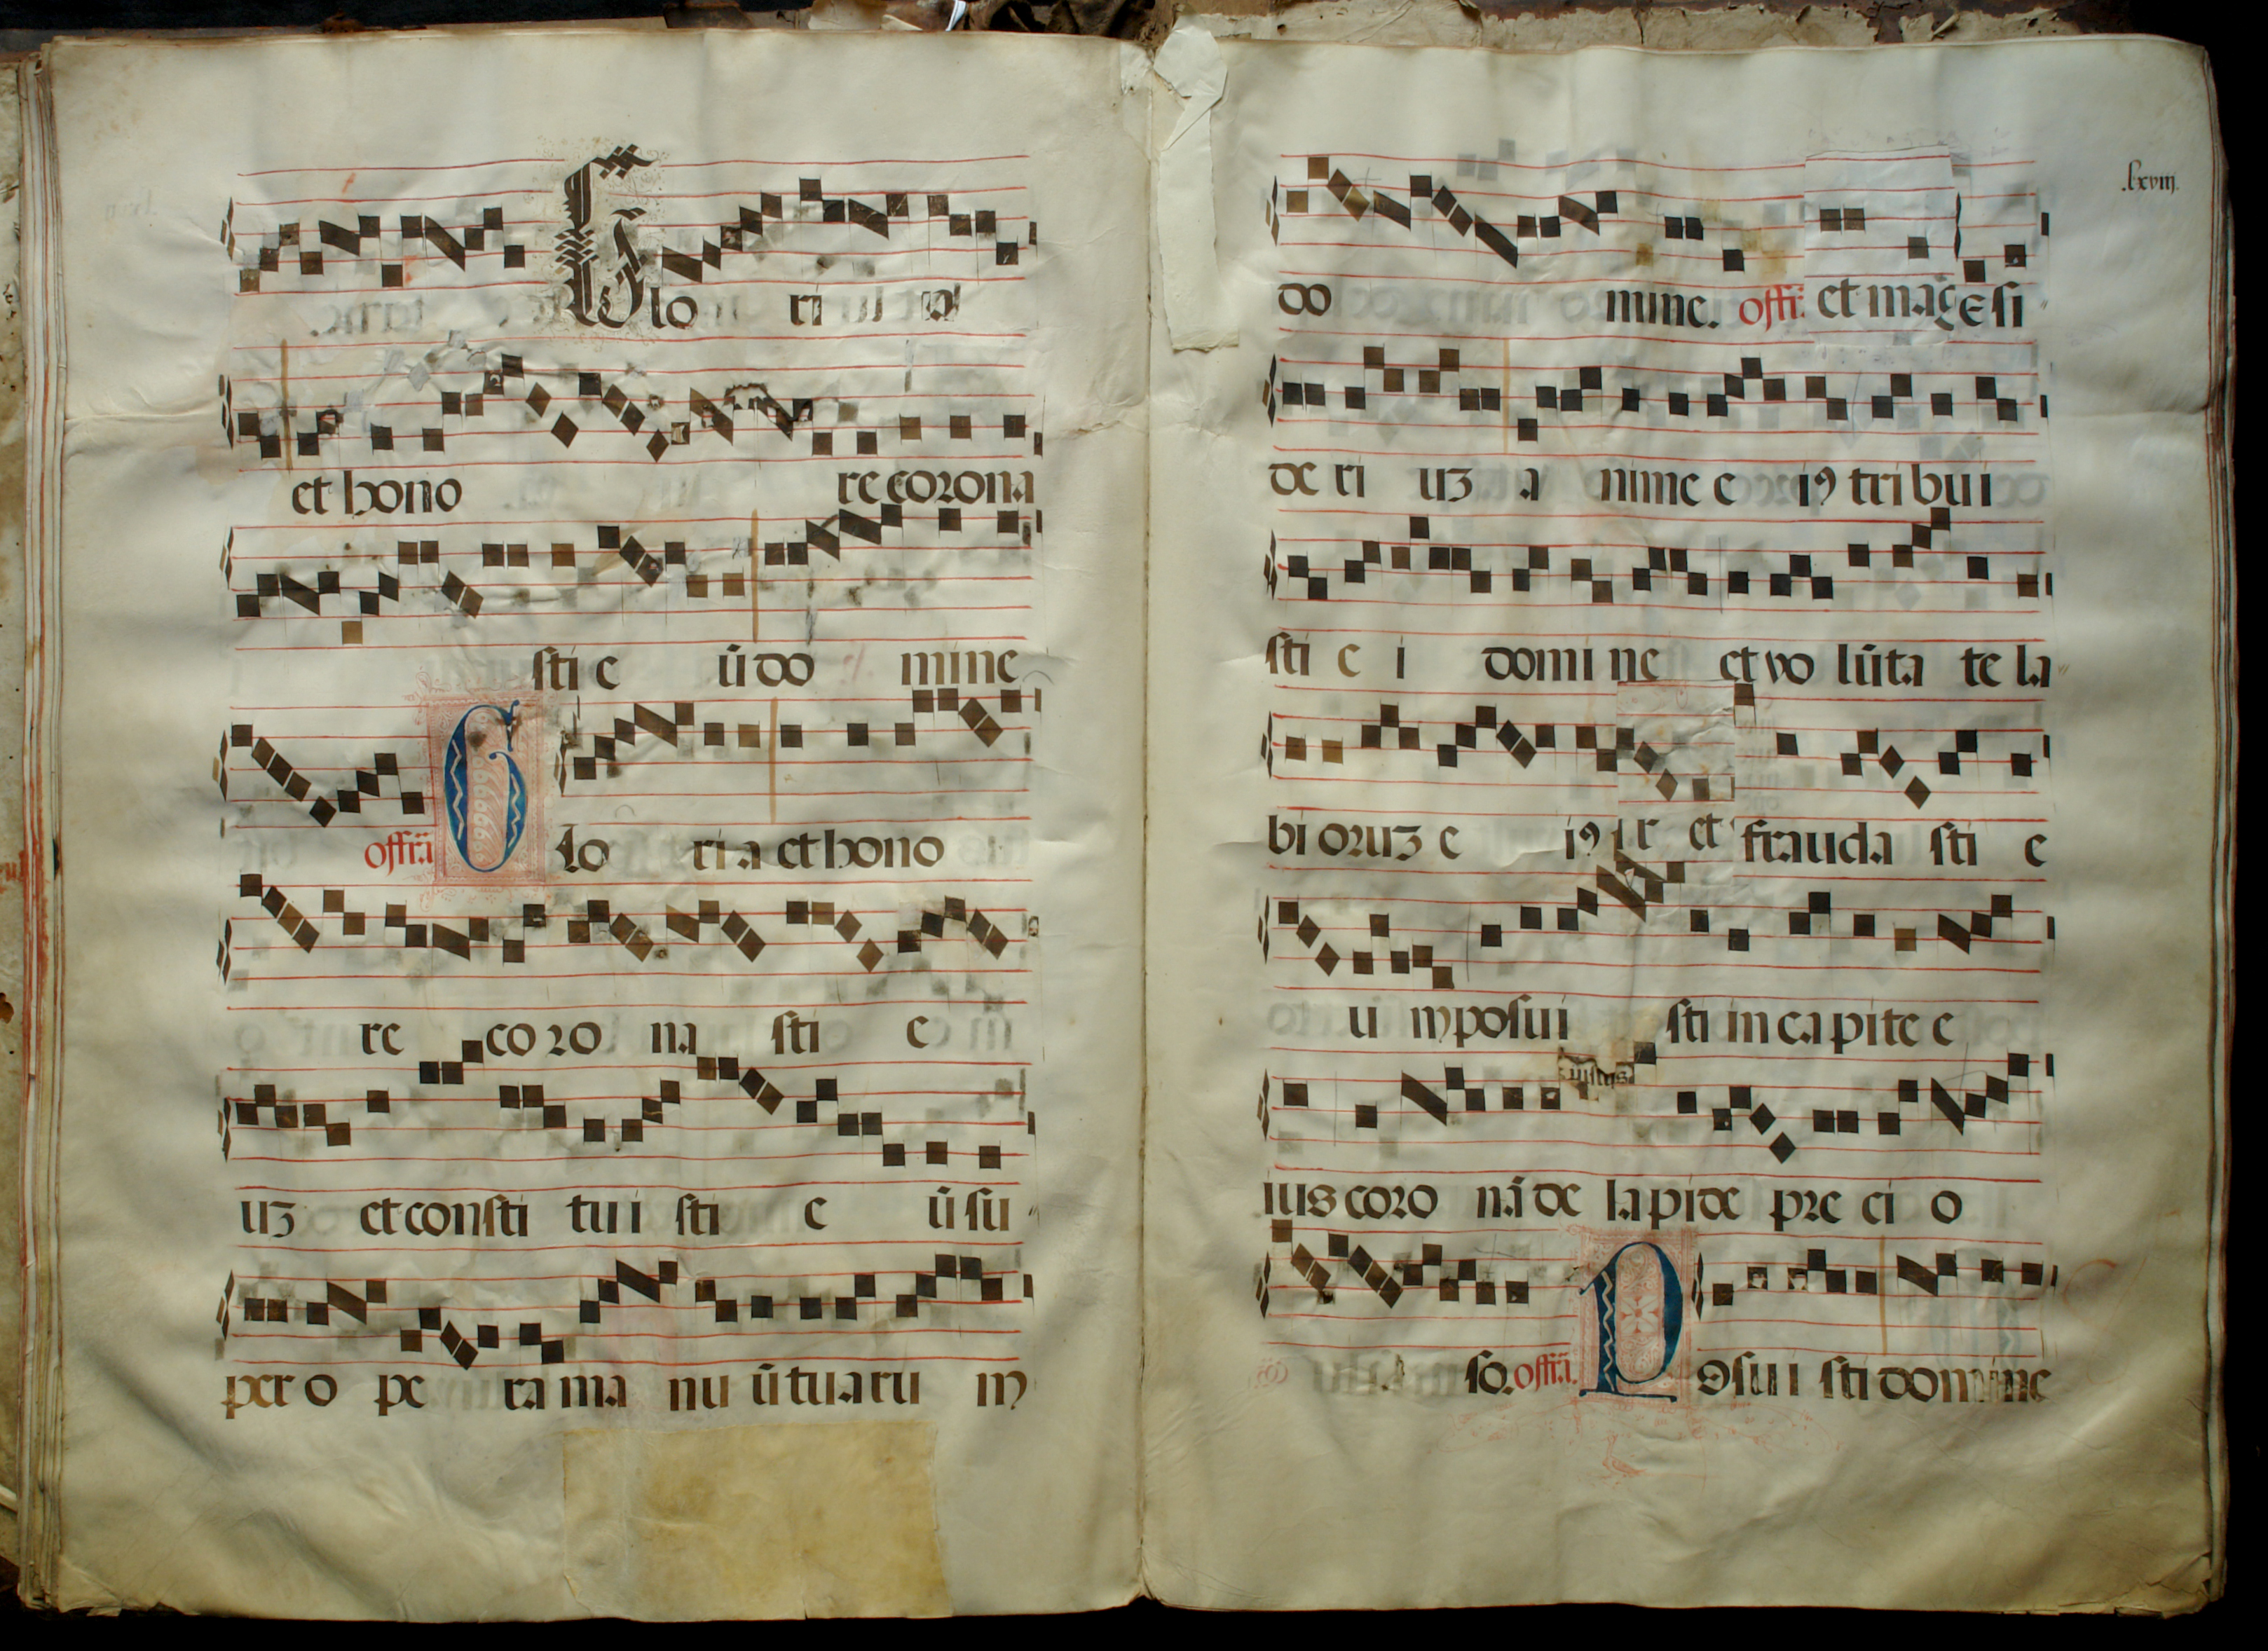 Glo ri a
et hono re corona
sti e ū do mine
offrā Glo ri a et hono
re co ro na sti e
uʒ et consti tu i sti e ū su
per o pe ra ma nu ū tuaru m
.lxviij.
do mine. offr̄. et mag̃ e si
de ri uʒ a nime e iꝯ tri bu i
sti e i domi ne et vo lūta te la
bi oruʒ e iꝯ et frauda sti e
u m posui sti in ca pite e
iustus
ius coro nā de lapide pre ci o
so. offrā. Posu i sti domine